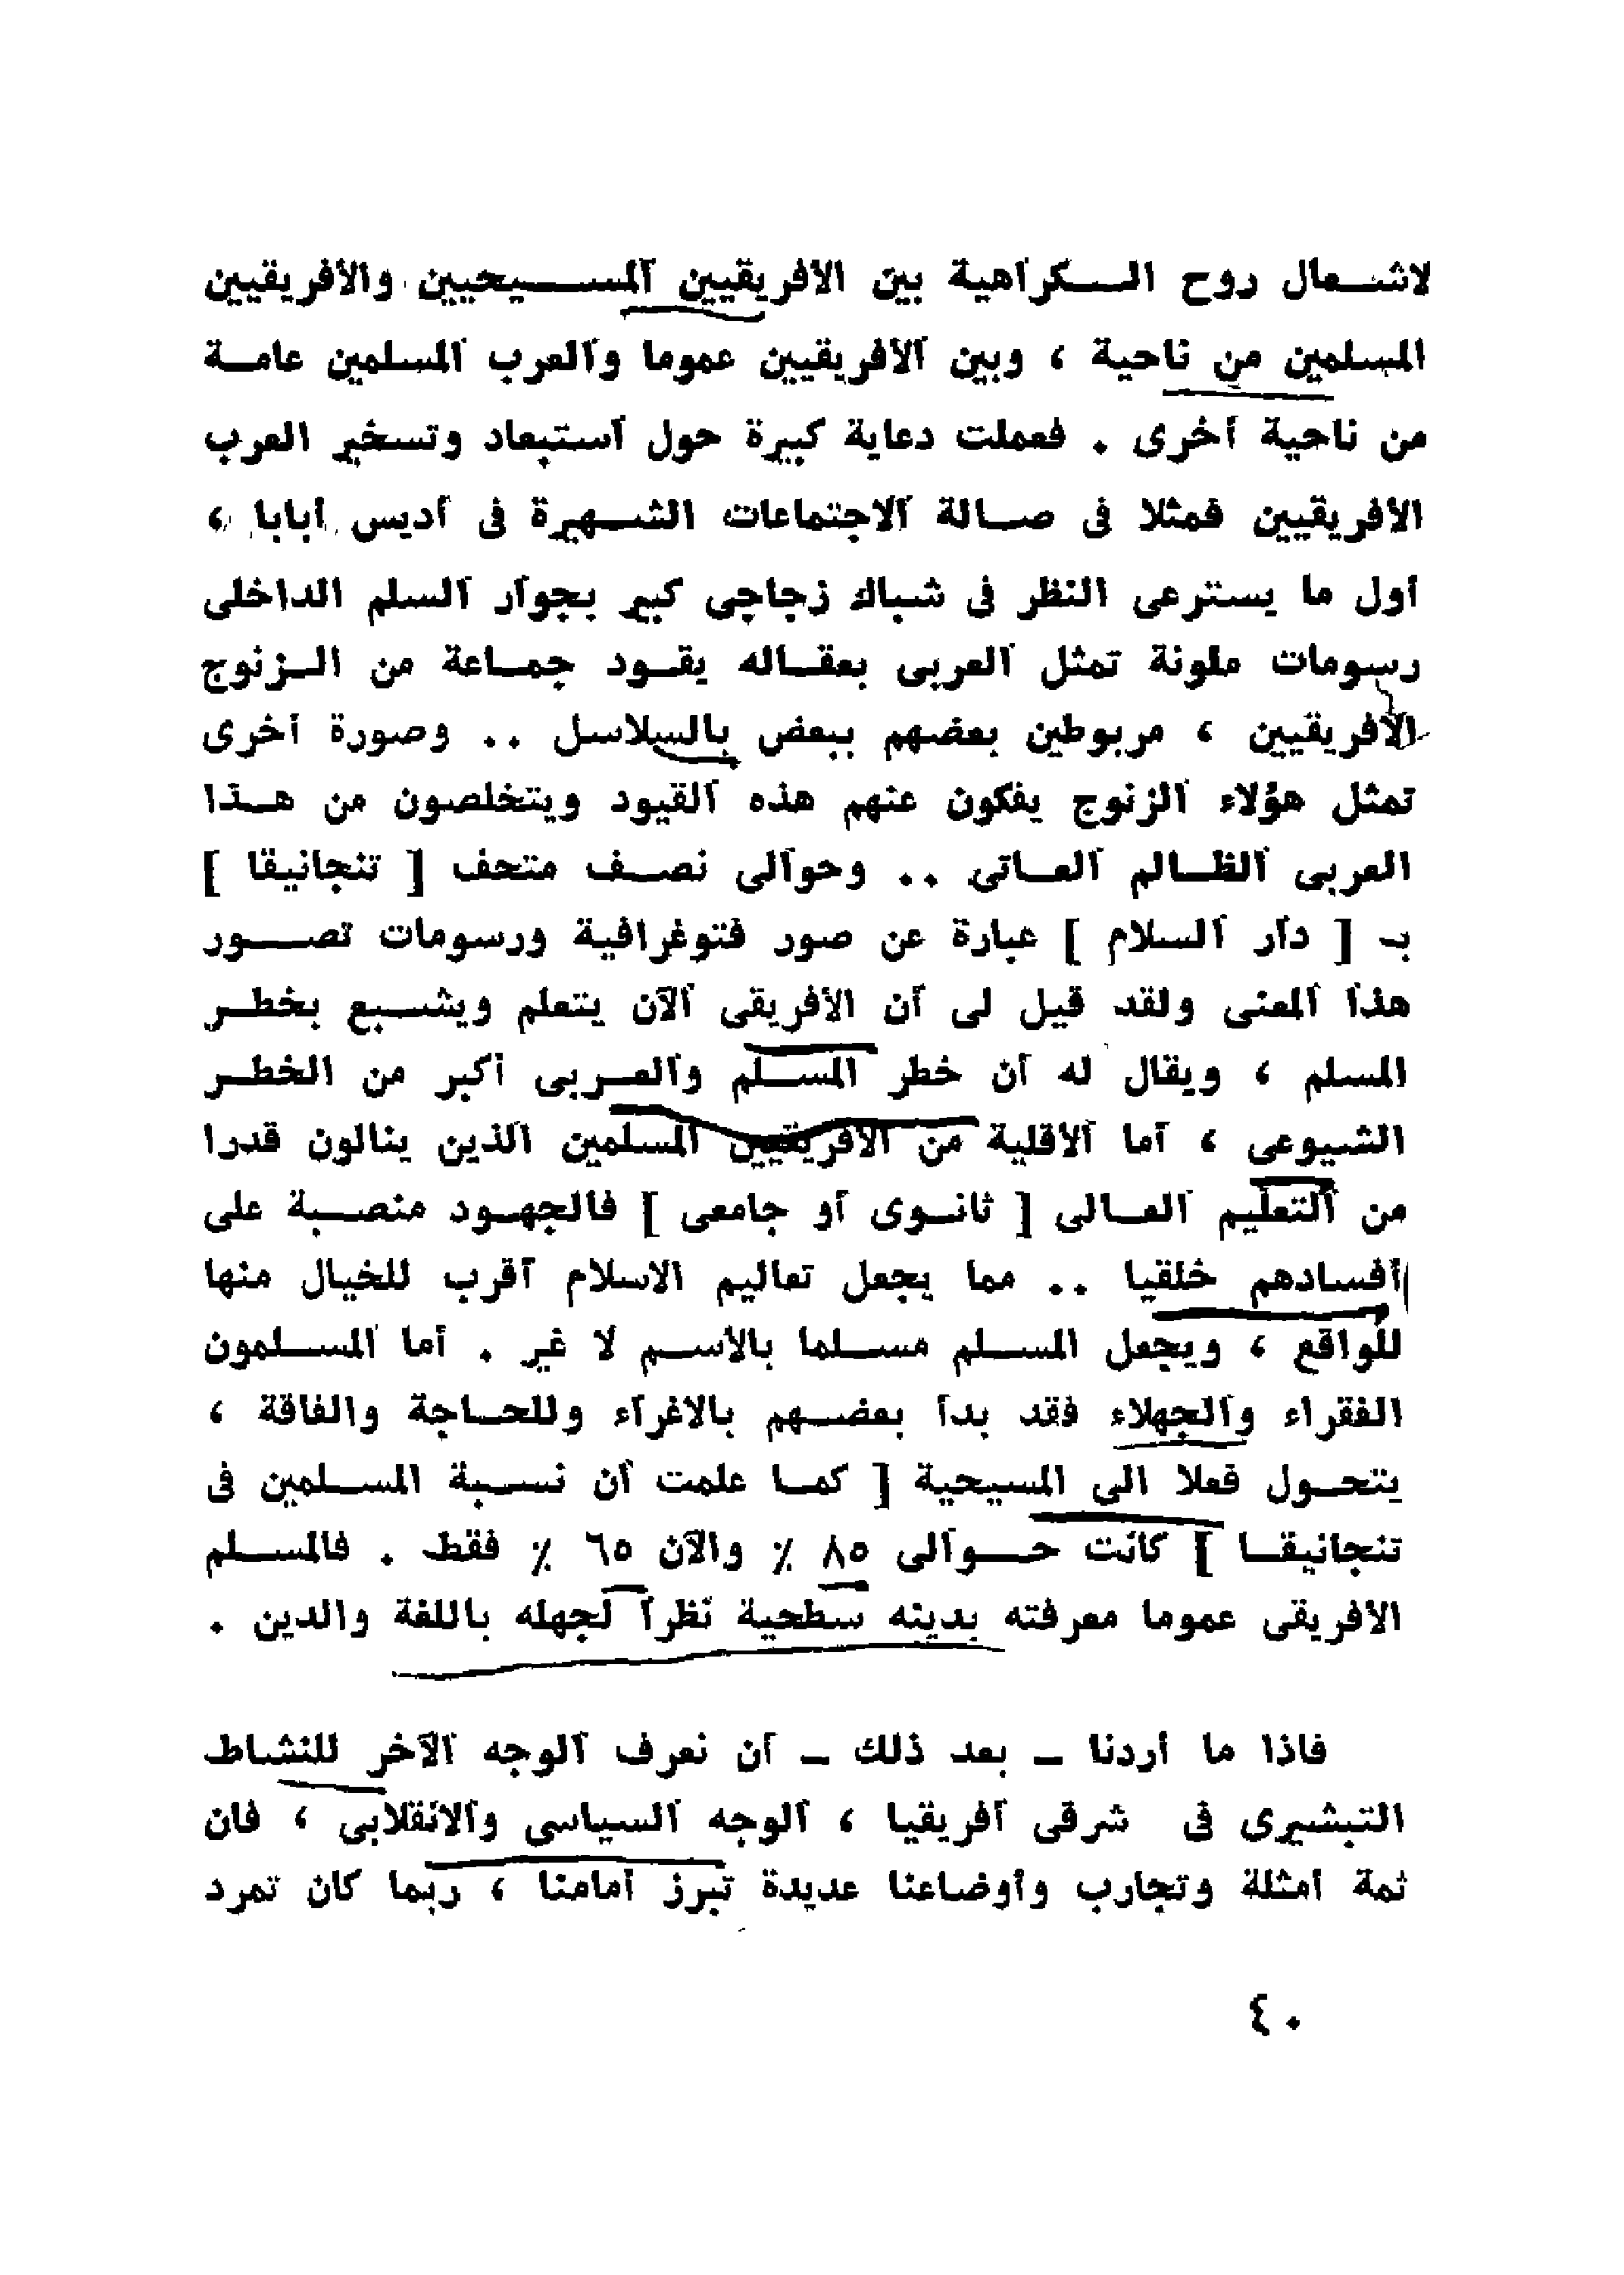 لاشعال روح الكراهية بين الافريقيين المسيحيين والأفريقيين
المسلمين من ناحية ، وبين الأفريقيين عموما والعرب المسلمين عامة
من ناحية أخرى . فعملت دعاية كبيرة حول أستبعاد وتسخير العرب
الأفريقيين فمثلا فى صالة الاجتماعات الشهيرة فى أديس أبابا ،
أول ما يسترعى النظر فى شباك زجاجى كبير بجوار السلم الداخلى
رسومات ملونة تمثل العربى بعقاله يقود جماعة من الزنوج
الأفريقيين ، مربوطين بعضهم ببعض بالسلاسل .. وصورة أخرى
تمثل هؤلاء الزنوج يفكون عنهم هذه القيود ويتخلصون من هذا
العربى الظالم العاتى .. وحوالى نصف متحف [ تنجانيقا ]
بـ [ دار السلام ] عبارة عن صور فتوغرافية ورسومات تصور
هذا المعنى ولقد قيل لى أن الأفريقى الآن يتعلم ويشبع بخطر
المسلم ، ويقال له أن خطر المسلم والعربى أكبر من الخطر
الشيوعى ، أما الأقلية من الأفريقيين المسلمين الذين ينالون قدرا
من التعليم العالى [ ثانوى أو جامعى ] فالجهود منصبة على
أفسادهم خلقيا .. مما يجعل تعاليم الاسلام أقرب للخيال منها
للواقع ، ويجعل المسلم مسلما بالأسم لا غير . أما المسلمون
الفقراء والجهلاء فقد بدأ بعضهم بالاغراء وللحاجة والفاقة ،
يتحول فعلا الى المسيحية [ كما علمت أن نسبة المسلمين فى
تنجانيقا ] كانت حوالى ٨٥ ٪ والآن ٦٥ ٪ فقط . فالمسلم
الافريقى عموما معرفته بدينه سطحية نظرا لجهله باللغة والدين .
فاذا ما أردنا – بعد ذلك – أن نعرف الوجه الآخر للنشاط
التبشيرى فى شرقى أفريقيا ، الوجه السياسى والانقلابى ، فان
ثمة أمثلة وتجارب وأوضاعنا عديدة تبرز أمامنا ، ربما كان تمرد
٤٠